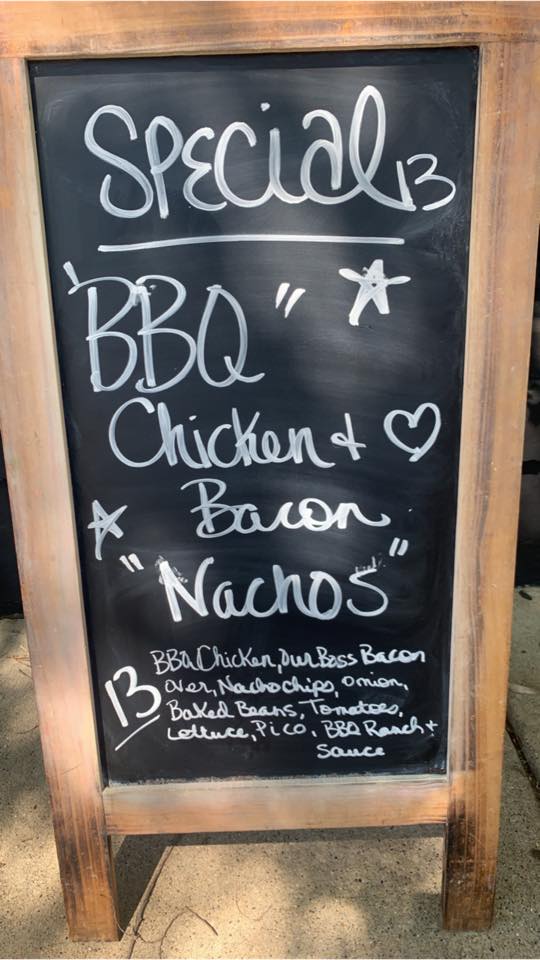 Special 13
"BBQ"
Chicken +
Bacon
"Nachos"
13
BBQ Chicken, Our Bass Bacon
Over, Nacho chips, onion,
Baked Beans, Tomatoes,
Lettuce, Pico, BBQ Ranch +
Sauce